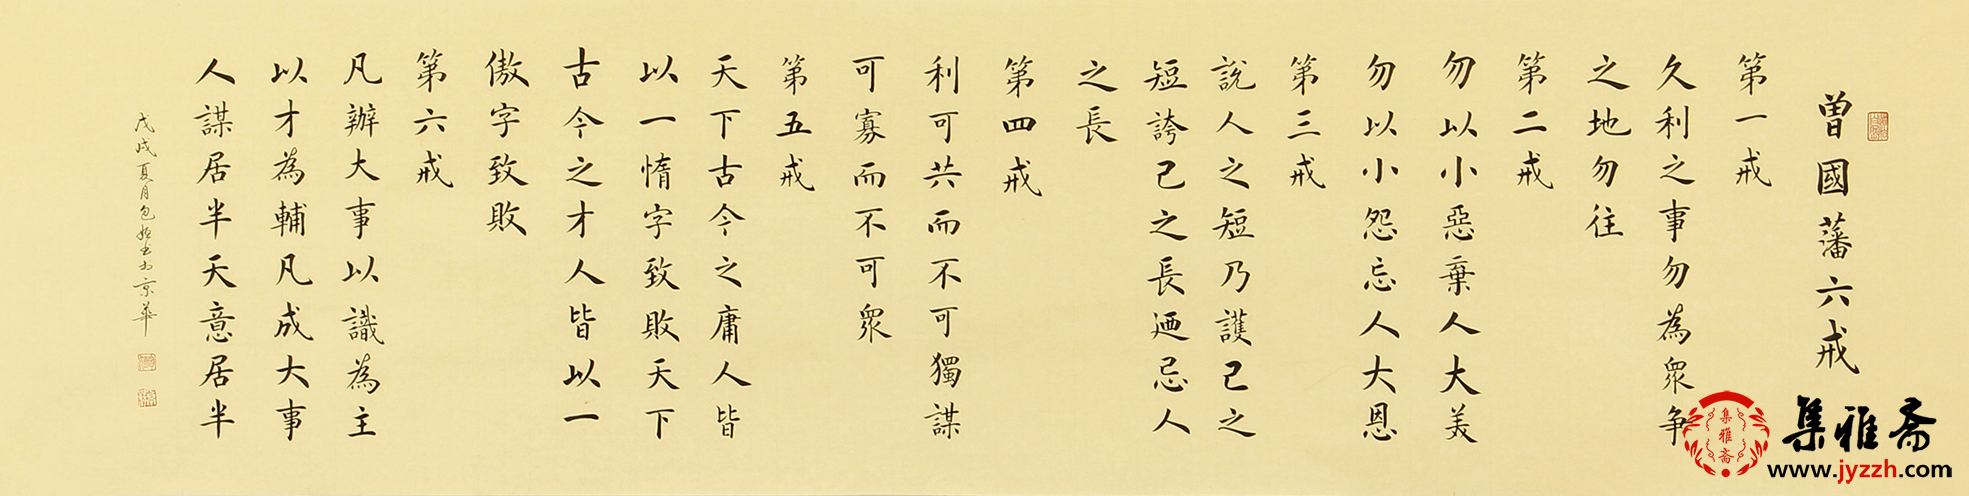 曾國藩六戒
第一戒
久利之事勿為眾争
之地勿往
第二戒
勿以小惡棄人大美
勿以小怨忘人大恩
第三戒
說人之短乃護己之
短誇己之長迺忌人
之長
第四戒
利可共而不可獨謀
可寡而不可眾
第五戒
天下古今之庸人皆
以一惰字致敗天下
古今之才人皆以一
傲字致敗
第六戒
凡辦大事以識為主
以才為輔凡成大事
人謀居半天意居半
戊戌夏月包書於京華
集雅斋
集雅斋
www.jyzzh.com